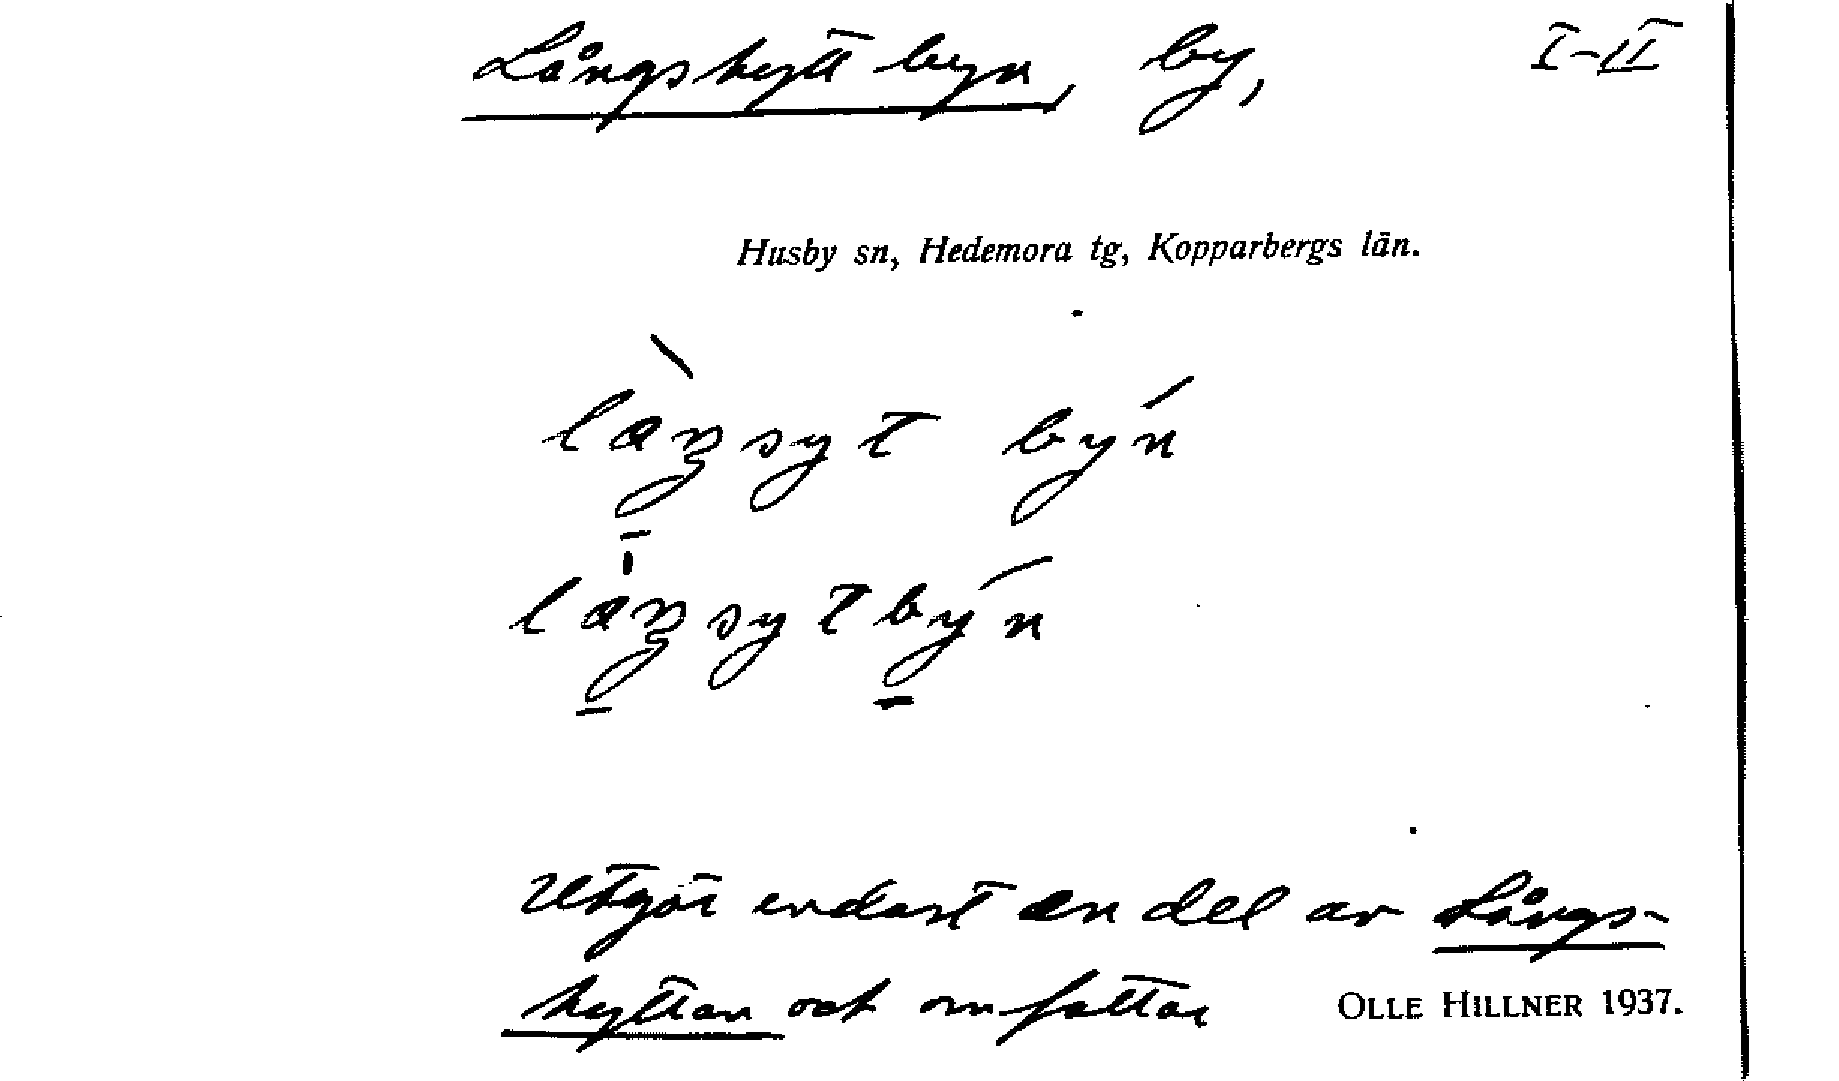 Långshyttbyn, by, I-II
Husby sn, Hedemora tg, Kopparbergs län.
Utgör endast en del av Långs-
hyttan och omfattar OLLE HILLNER 1937.